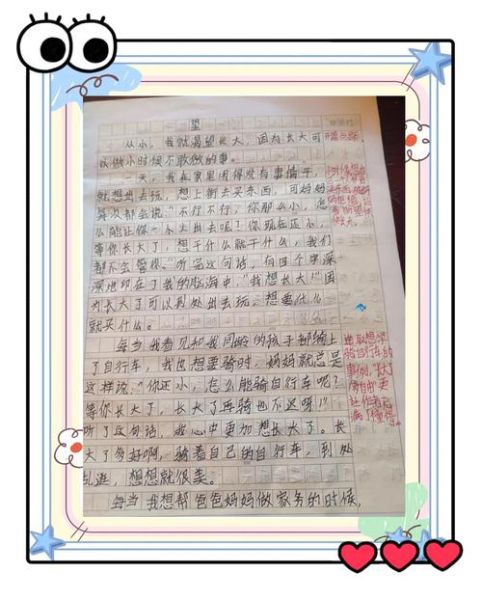 望
从小，我就渴望长大，因为长大可
以做小时候不敢做的事。
一天，我在家里闲得没有事情干，
就想出去玩，想上街去买东西，可妈妈
总会说："不行不行，你那么小，怎
么能让你一个人出去呢？你现在还小，
等你长大了，想干什么就干什么，我们
都不会管你。"听完这句话，有四个字深
深地印在了我的脑海中："我想长大！"因
为长大了可以到处出去玩，想要什么
就买什么。
每当我看见和我同龄的孩子都骑上
了自行车，我也想要骑时，妈妈就总是
这样说："你还小，怎么能骑自行车呢？
等你长大了，长大了再骑也不迟呀！"
听了这句话，我心中更加想长大了。长
大了多好啊，骑着自己的自行车，到处
乱逛，想想就很美。
每当我想帮爸爸妈妈做家务的时候，